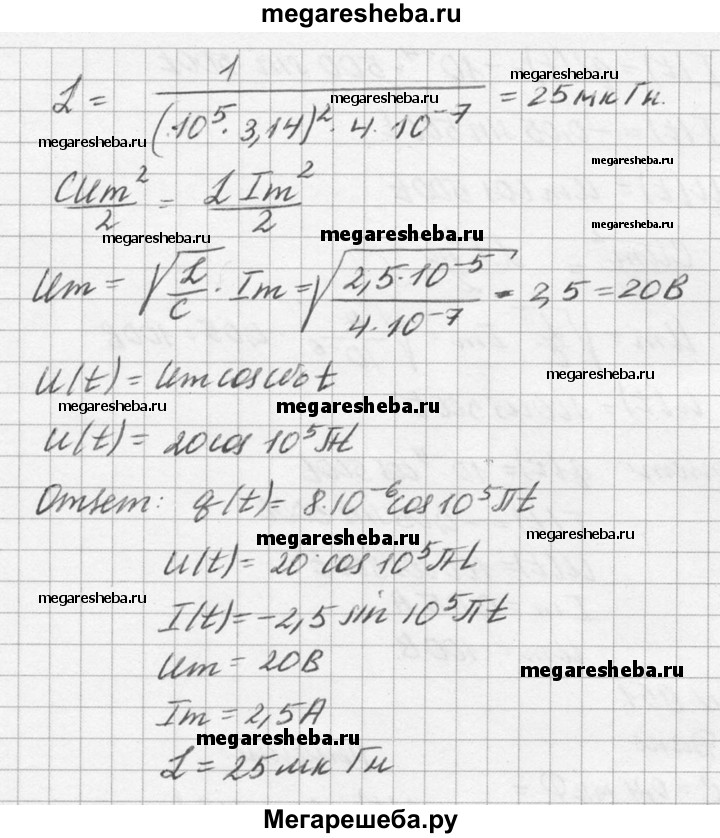 megaresheba.ru
L = 1 / (10⁵·3,14)²·4·10⁻⁷ = 25 мкГн.
megaresheba.ru
megaresheba.ru
megaresheba.ru
megaresheba.ru
CUm²/2 = LIm²/2
megaresheba.ru
megaresheba.ru
megaresheba.ru
Um = √(L/C) · Im = √(2,5·10⁻⁵ / 4·10⁻⁷) · 2,5 = 20В
U(t) = Um cos ω₀t
megaresheba.ru
megaresheba.ru
megaresheba.ru
megaresheba.ru
U(t) = 20cos 10⁵πt
Ответ: q(t) = 8·10⁻⁶cos10⁵πt
megaresheba.ru
megaresheba.ru
U(t) = 20·cos10⁵πt
megaresheba.ru
megaresheba.ru
I(t) = -2,5 sin 10⁵πt
Um = 20В
megaresheba.ru
Im = 2,5А
megaresheba.ru
L = 25 мкГн
Мегарешеба.ру